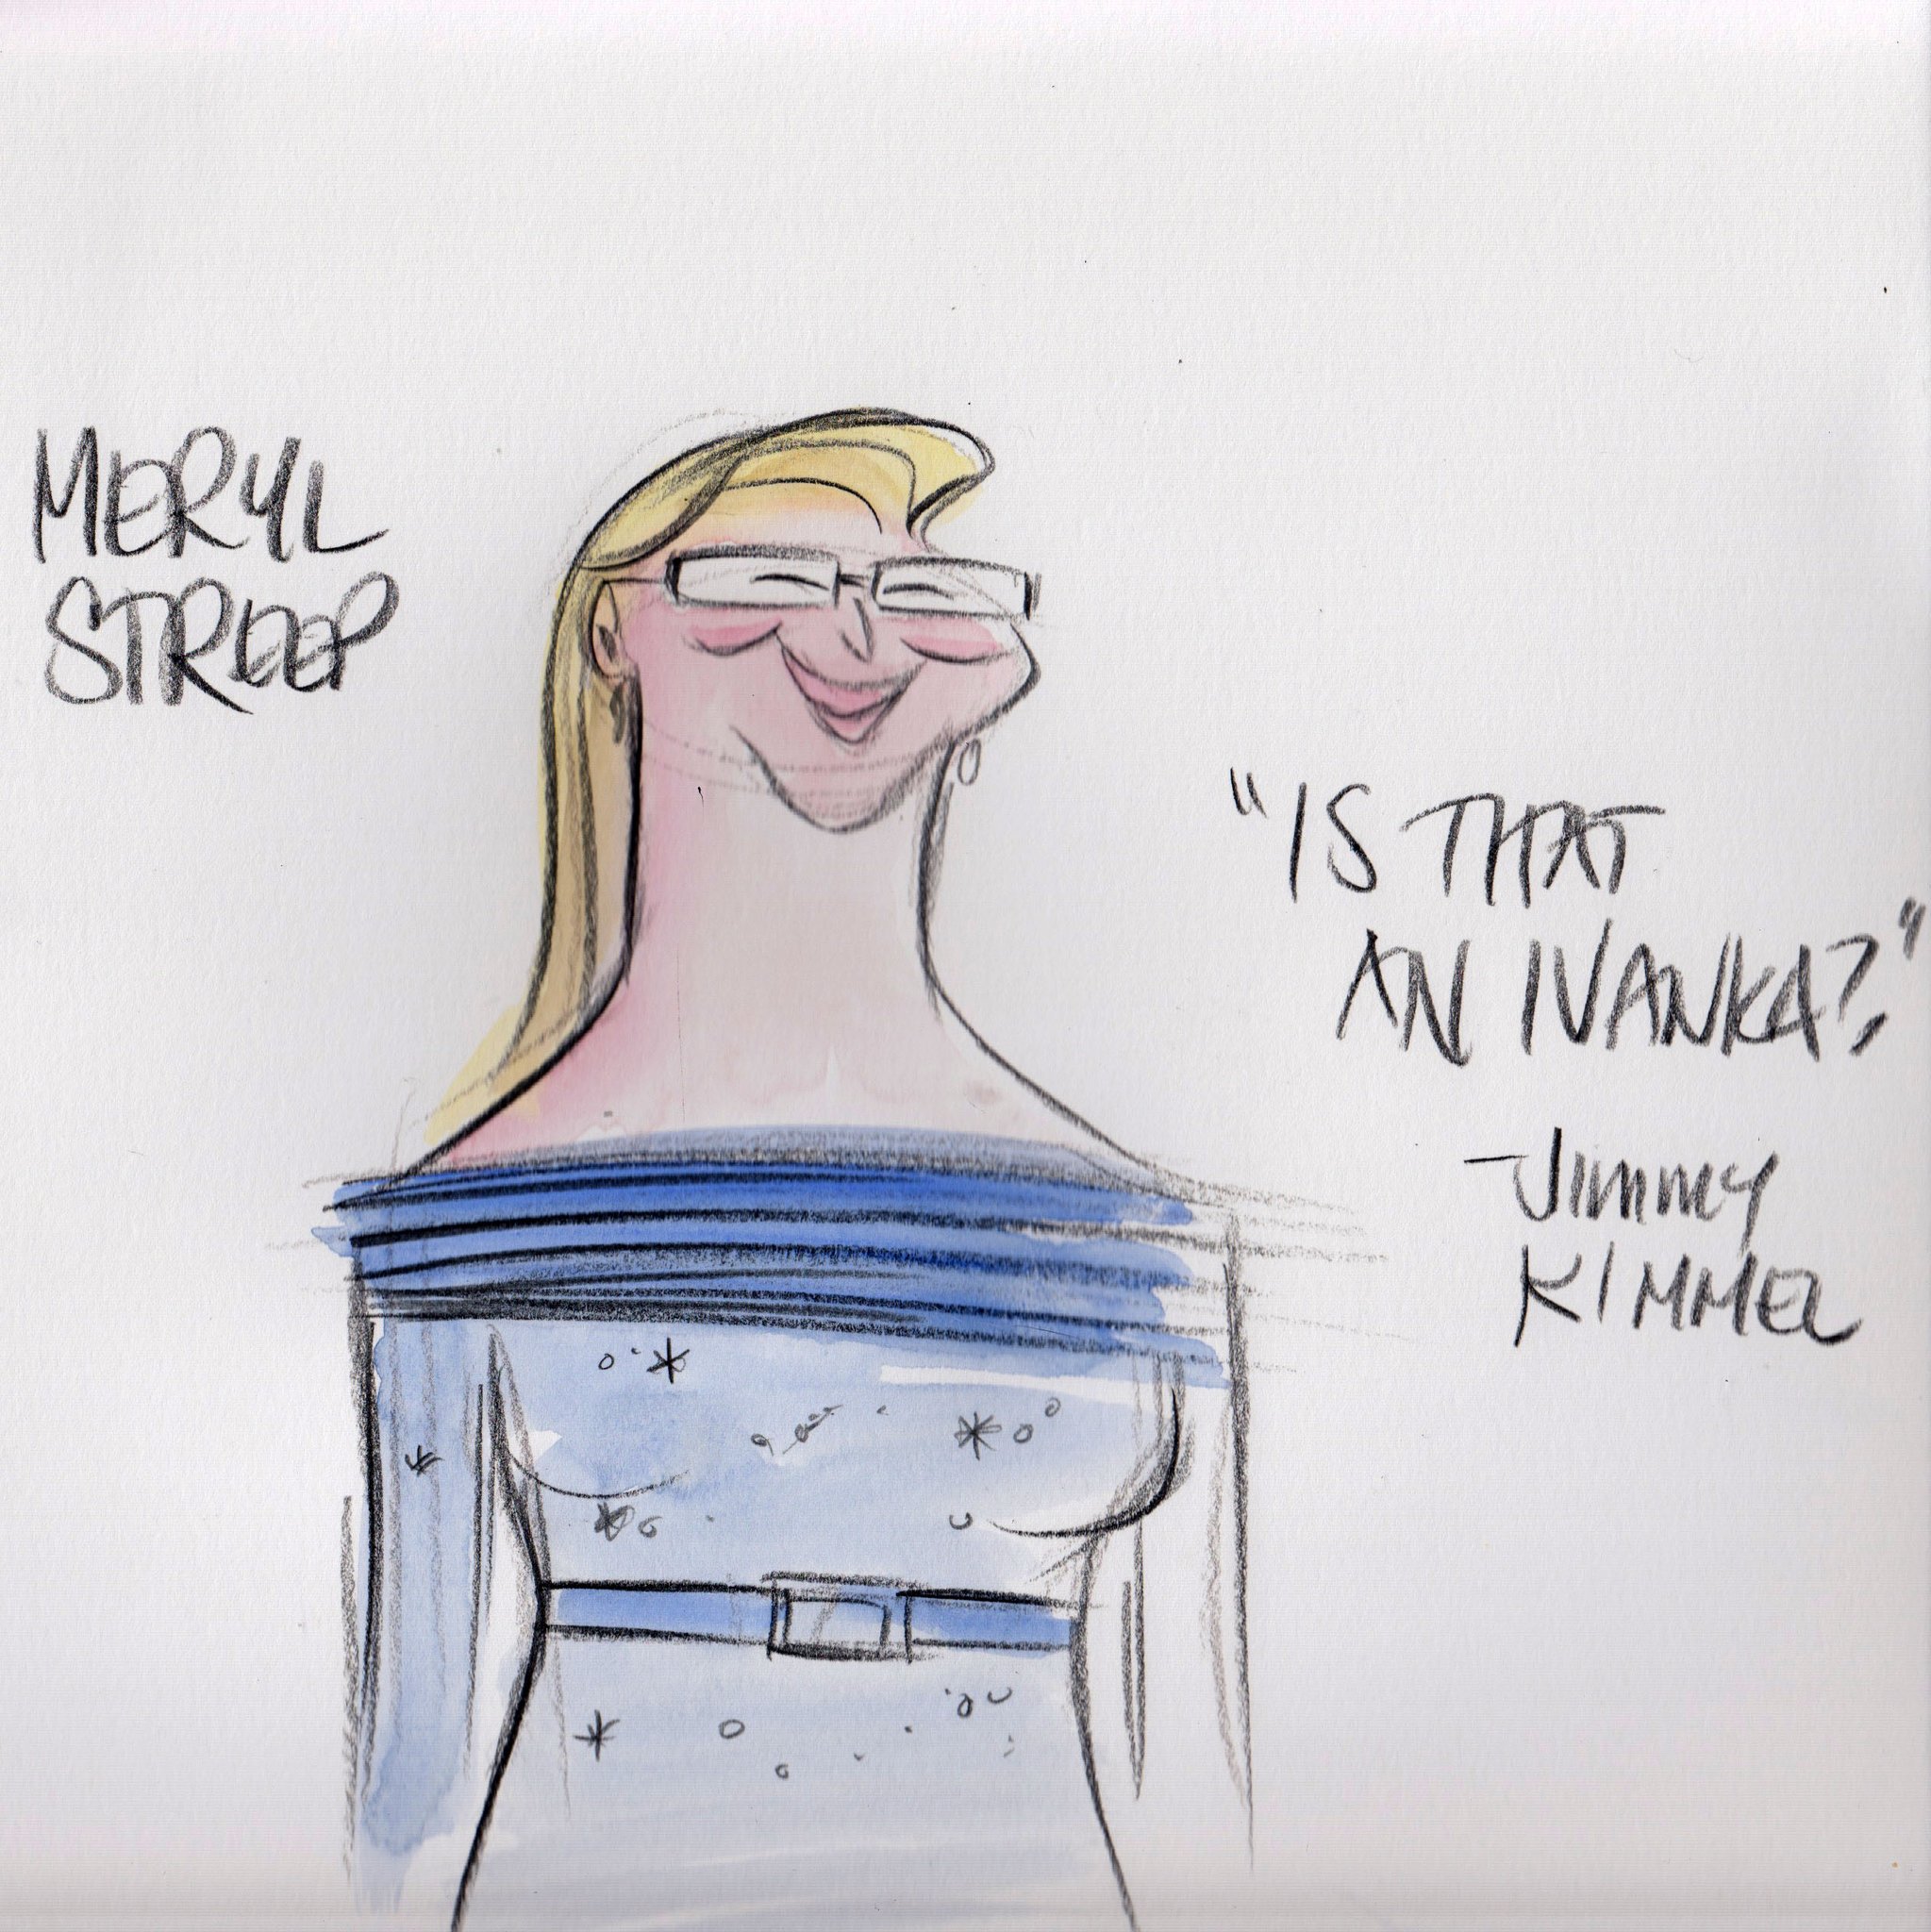 MERYL
STREEP
"IS THAT
AN IVANKA?"
-JIMMY
KIMMEL